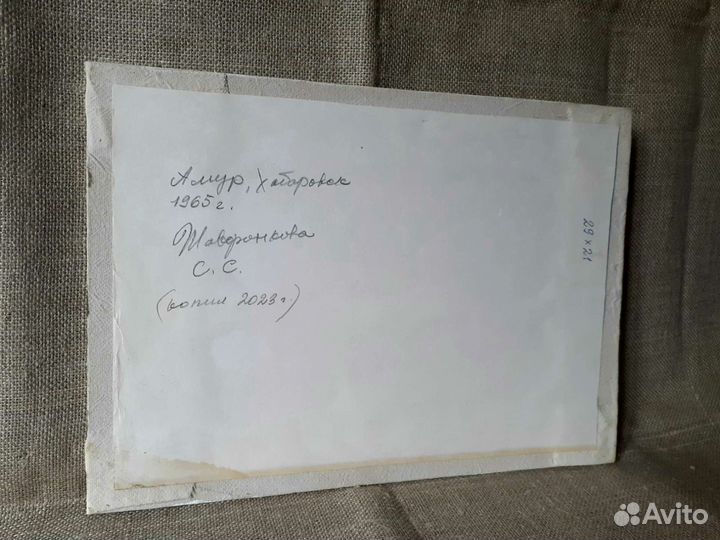 Амур, Хабаровск
1965 г.
Жаворонкова
С. С.
(копия 2023 г.)
29 x 21
Avito